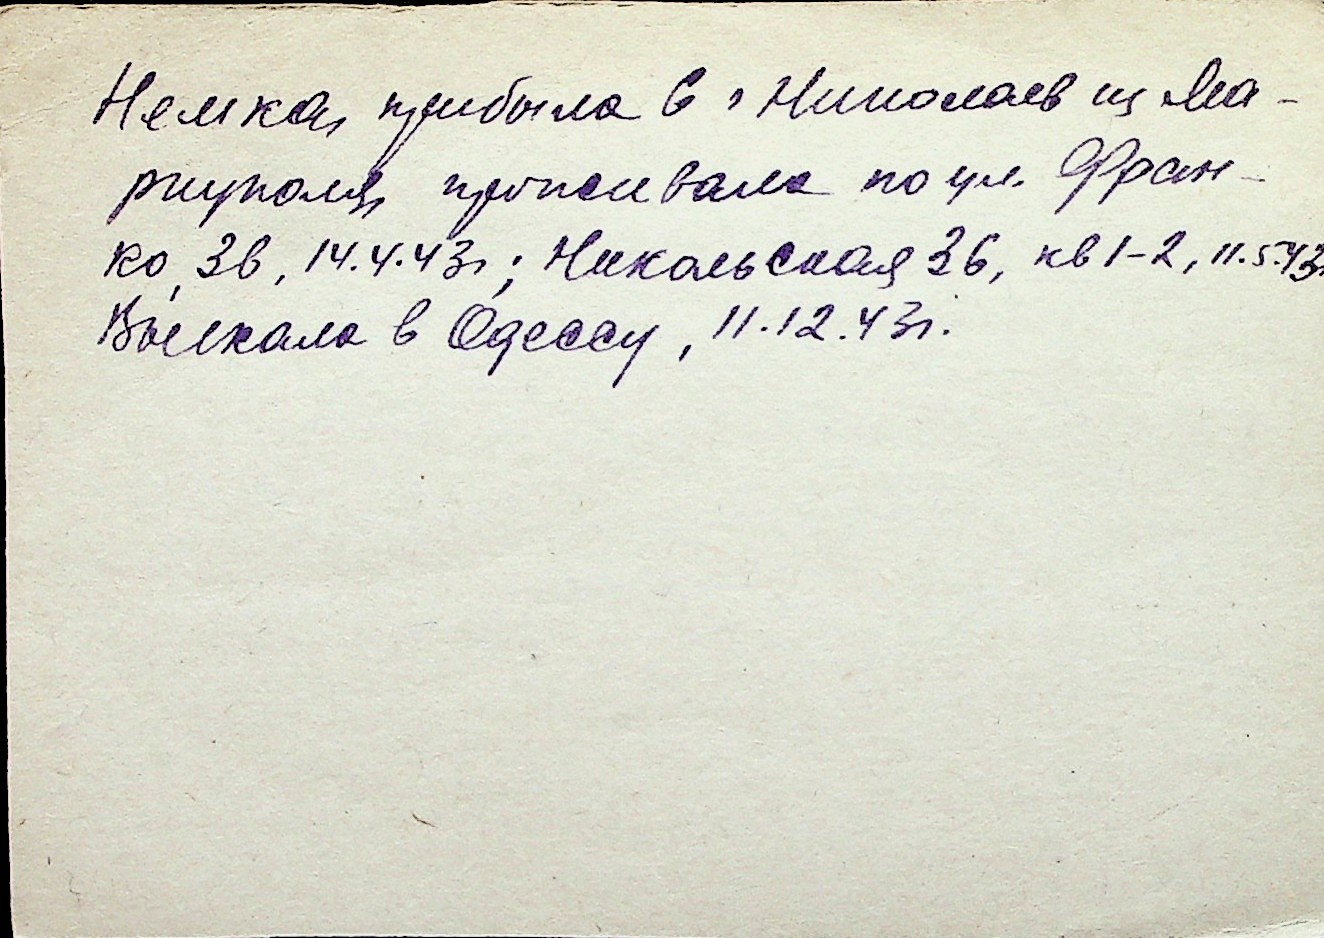 Немка, прибыла в г Николаев из Ма-
риуполя, проживала по ул. Фран-
ко, 3в, 14.4.43г; Никольская 36, кв 1-2, 11.5.43г
Выехала в Одессу, 11.12.43г.